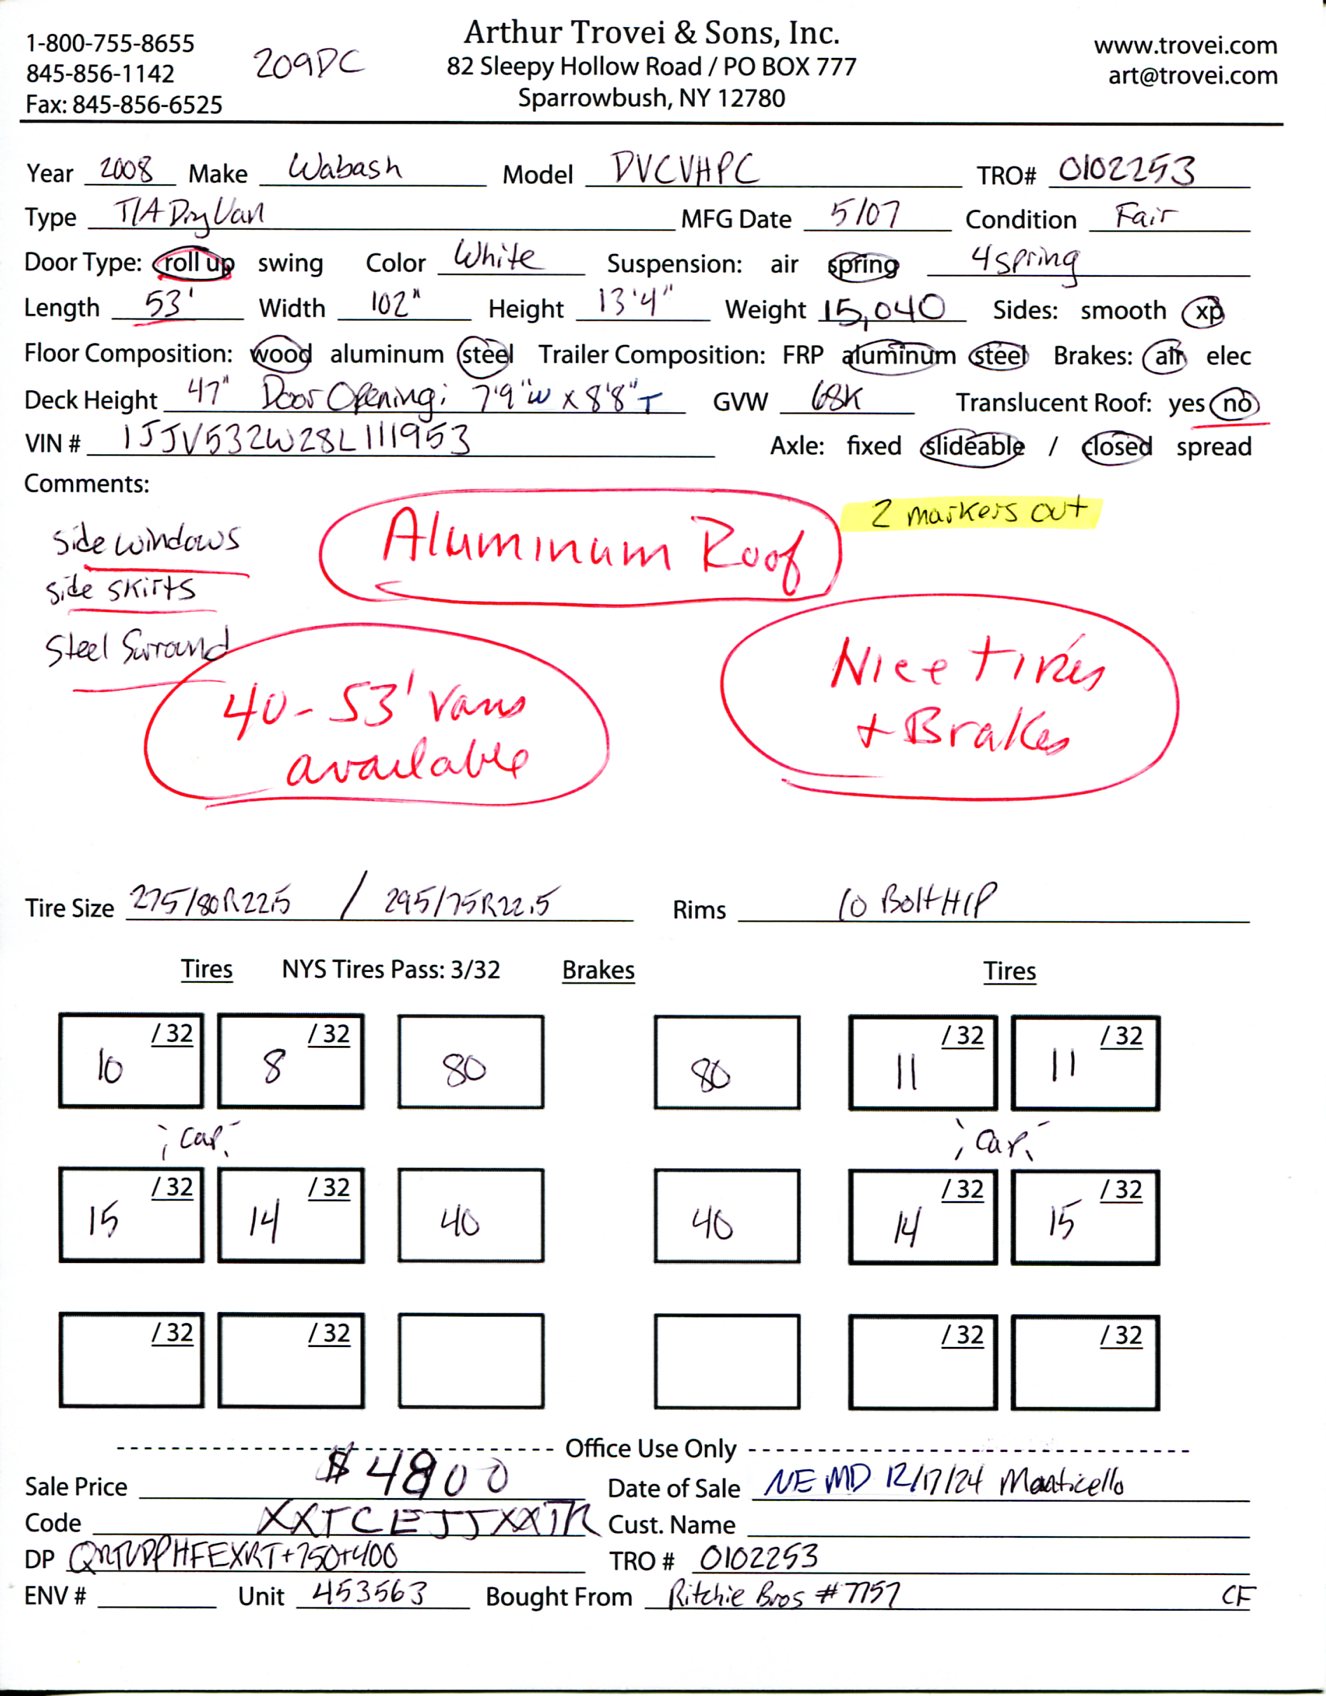 1-800-755-8655
845-856-1142
Fax: 845-856-6525
209DC
Arthur Trovei & Sons, Inc.
82 Sleepy Hollow Road / PO BOX 777
Sparrowbush, NY 12780
www.trovei.com
art@trovei.com
Year 2008 Make Wabash Model DVCVHPC TRO# 0102253
Type T/A Dry Van MFG Date 5/07 Condition Fair
Door Type: roll up swing Color White Suspension: air spring 4 spring
Length 53' Width 102" Height 13'4" Weight 15,040 Sides: smooth xp
Floor Composition: wood aluminum steel Trailer Composition: FRP aluminum steel Brakes: air elec
Deck Height 47" Door Opening: 7'9"W x 8'8"T GVW 68K Translucent Roof: yes no
VIN # 1JJV532W28L111953 Axle: fixed slideable / closed spread
Comments:
2 markers out
Aluminum Roof
side windows
side skirts
Steel Surround
40-53' vans
available
Nice tires
+ Brakes
Tire Size 275/80R22.5 / 295/75R22.5 Rims 10 Bolt H/P
Tires NYS Tires Pass: 3/32 Brakes Tires
10 /32 8 /32 80 80 11 /32 11 /32
Cap Cap
15 /32 14 /32 40 40 14 /32 15 /32
/32 /32 /32 /32
Office Use Only
Sale Price $4800 Date of Sale NE MD 12/17/24 Monticello
Code Cust. Name
DP +750+400 TRO # 0102253
ENV # Unit 453563 Bought From Ritchie Bros #7757 CF